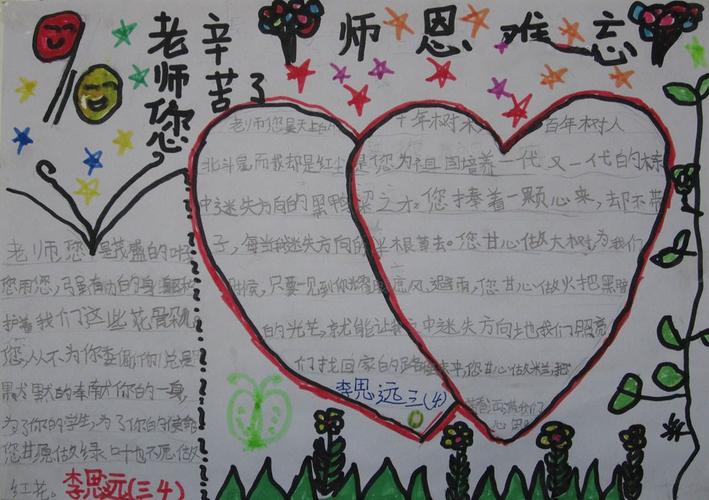 老师您辛苦了
师恩难忘
老师您是天上的
北斗星而我却是红尘
中迷失方向的黑鸭
子，每当我迷失方向的
时候，只要一见到你
的光芒，就能让我
们找回家的路
李思远三(4)
十年树木 百年树人
是您为祖国培养一代又一代的栋
梁之才。您捧着一颗心来，去却不带
半根草去。您甘心做大树为我们
风避雨，您甘心做火把黑
中迷失方向地我们照亮
您甘心做
老师，您是茂盛的
您用您，弓虽有力的身躯
护着我们这些花骨朵儿
您，从不为你 你总是
默默的奉献你的一身，
为了你的学生，为了你的使命
您甘愿做绿叶也不愿做
红花。李思远(三4)